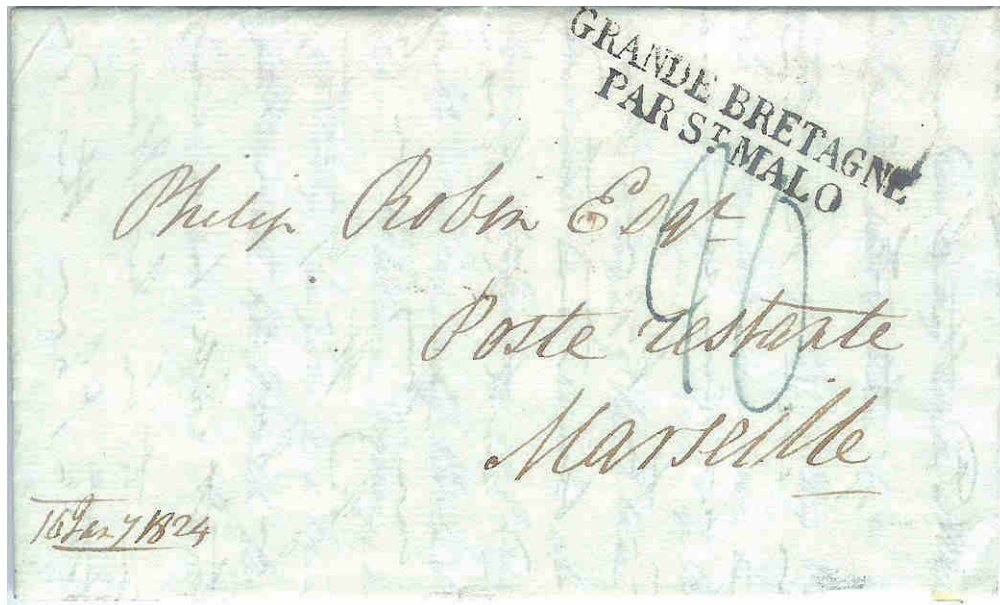 GRANDE BRETAGNE
PAR ST. MALO
Philip Robin Esqr
90
Poste restante
Marseille
16 Jany 1824